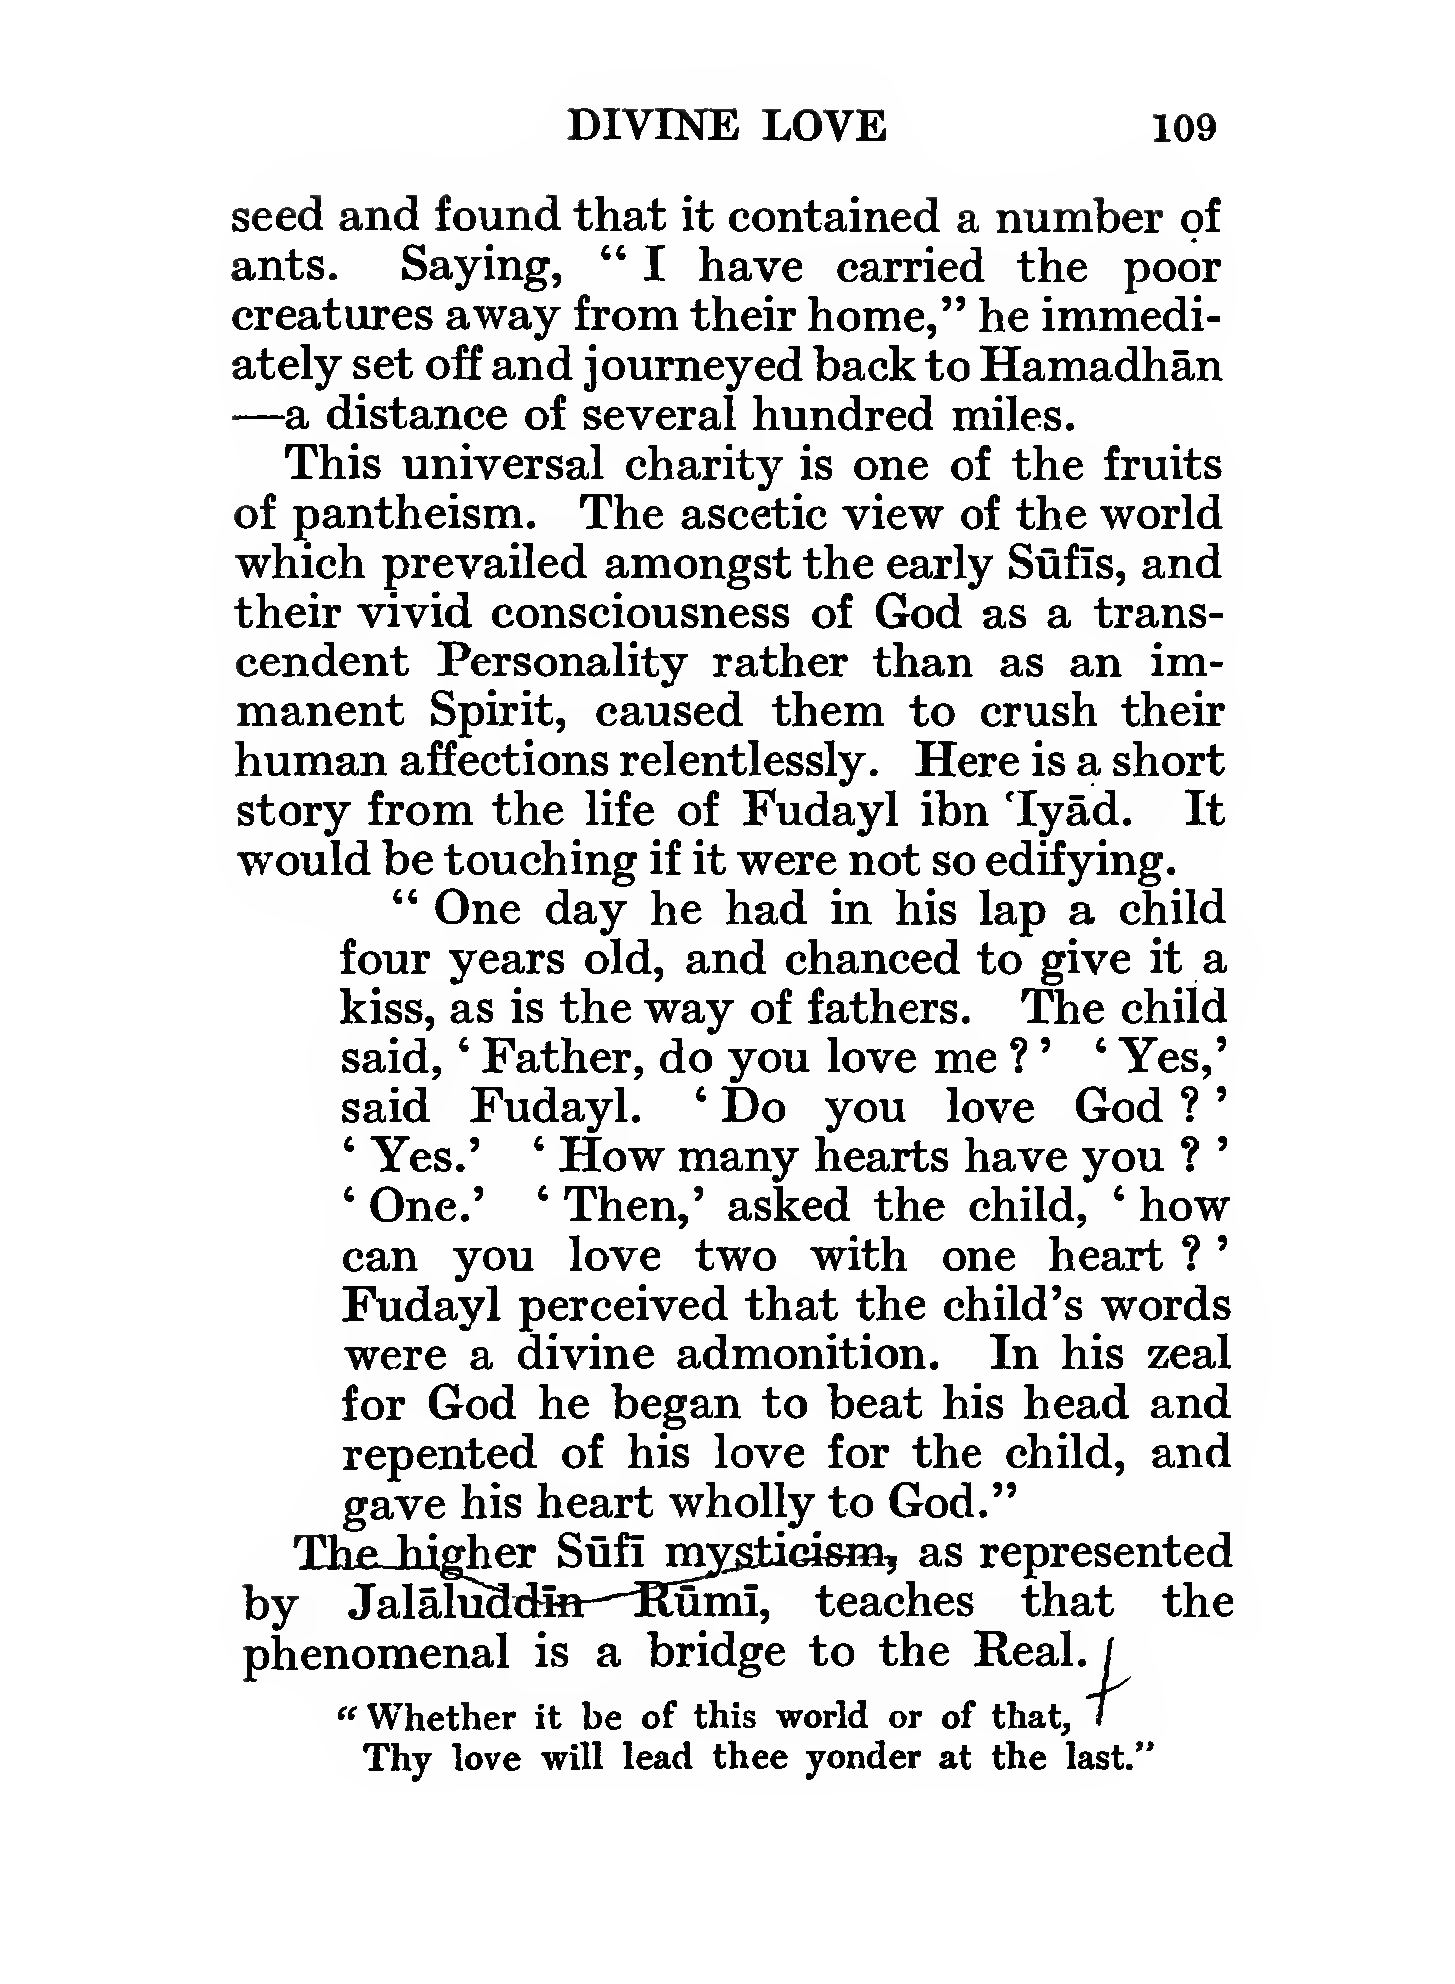 DIVINE LOVE 109
seed and found that it contained a number of
ants. Saying, “ I have carried the poor
creatures away from their home,” he immedi-
ately set off and journeyed back to Hamadhān
—a distance of several hundred miles.
This universal charity is one of the fruits
of pantheism. The ascetic view of the world
which prevailed amongst the early Sūfīs, and
their vivid consciousness of God as a trans-
cendent Personality rather than as an im-
manent Spirit, caused them to crush their
human affections relentlessly. Here is a short
story from the life of Fudayl ibn ‘Iyād. It
would be touching if it were not so edifying.
“ One day he had in his lap a child
four years old, and chanced to give it a
kiss, as is the way of fathers. The child
said, ‘ Father, do you love me ? ’ ‘ Yes,’
said Fudayl. ‘ Do you love God ? ’
‘ Yes.’ ‘ How many hearts have you ? ’
‘ One.’ ‘ Then,’ asked the child, ‘ how
can you love two with one heart ? ’
Fudayl perceived that the child’s words
were a divine admonition. In his zeal
for God he began to beat his head and
repented of his love for the child, and
gave his heart wholly to God.”
The higher Sūfī mysticism, as represented
by Jalāluddīn Rūmī, teaches that the
phenomenal is a bridge to the Real.
“ Whether it be of this world or of that,
Thy love will lead thee yonder at the last.”